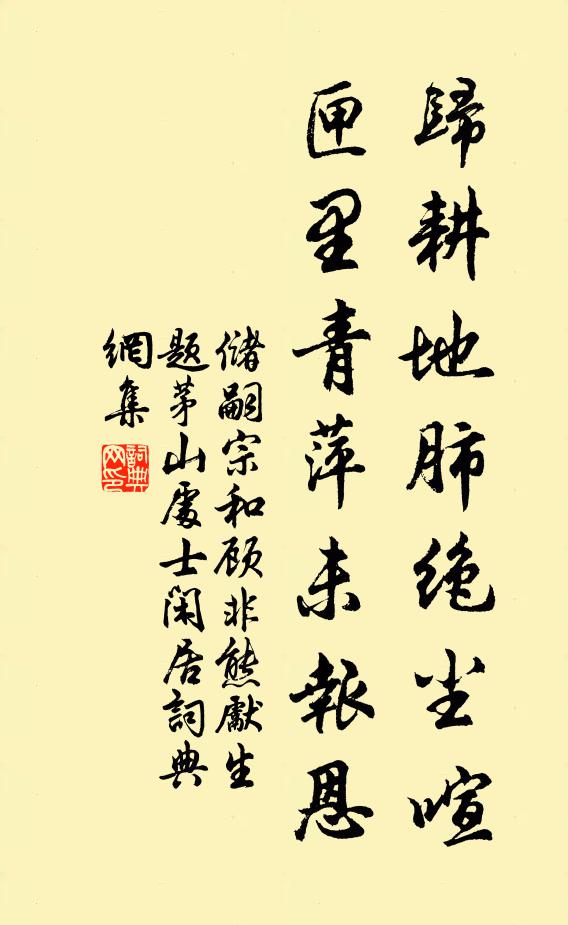 歸耕地肺絶尘喧
匣里青萍未報恩
儲嗣宗和顾非熊獻生
題茅山處士閑居詞典
網集
詞典
网印